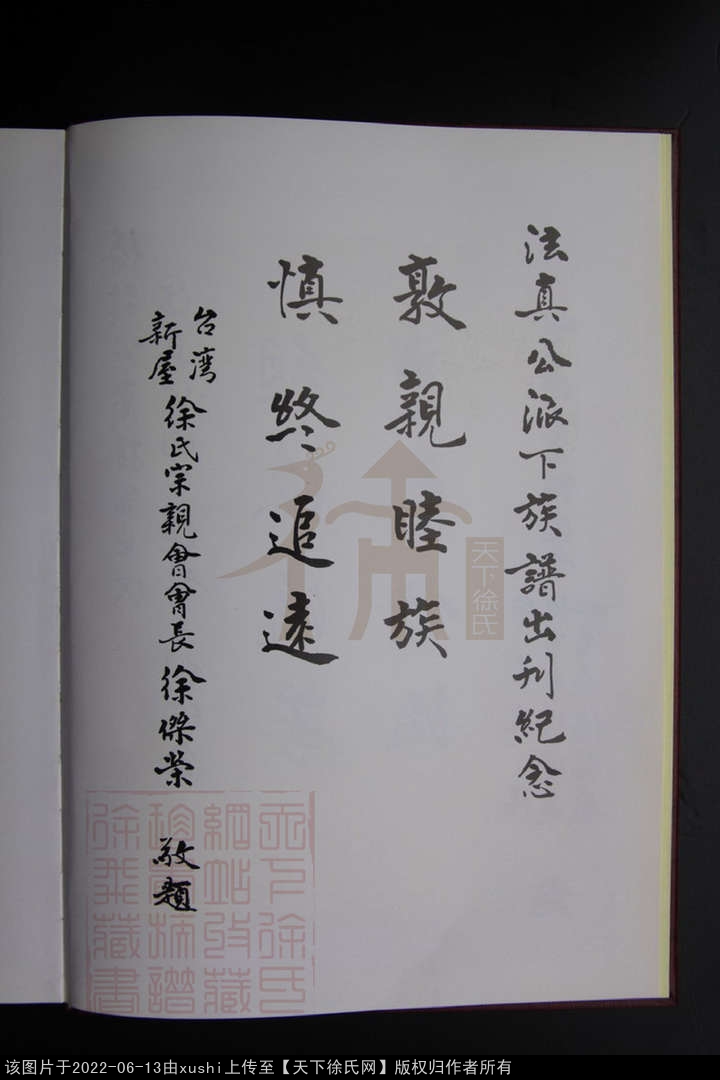 法真公派下族譜出刊紀念
敦親睦族
慎終追遠
台湾
新屋
徐氏宗親會會長徐傑榮 敬題
天下徐氏
该图片于2022-06-13由xushi上传至【天下徐氏网】版权归作者所有